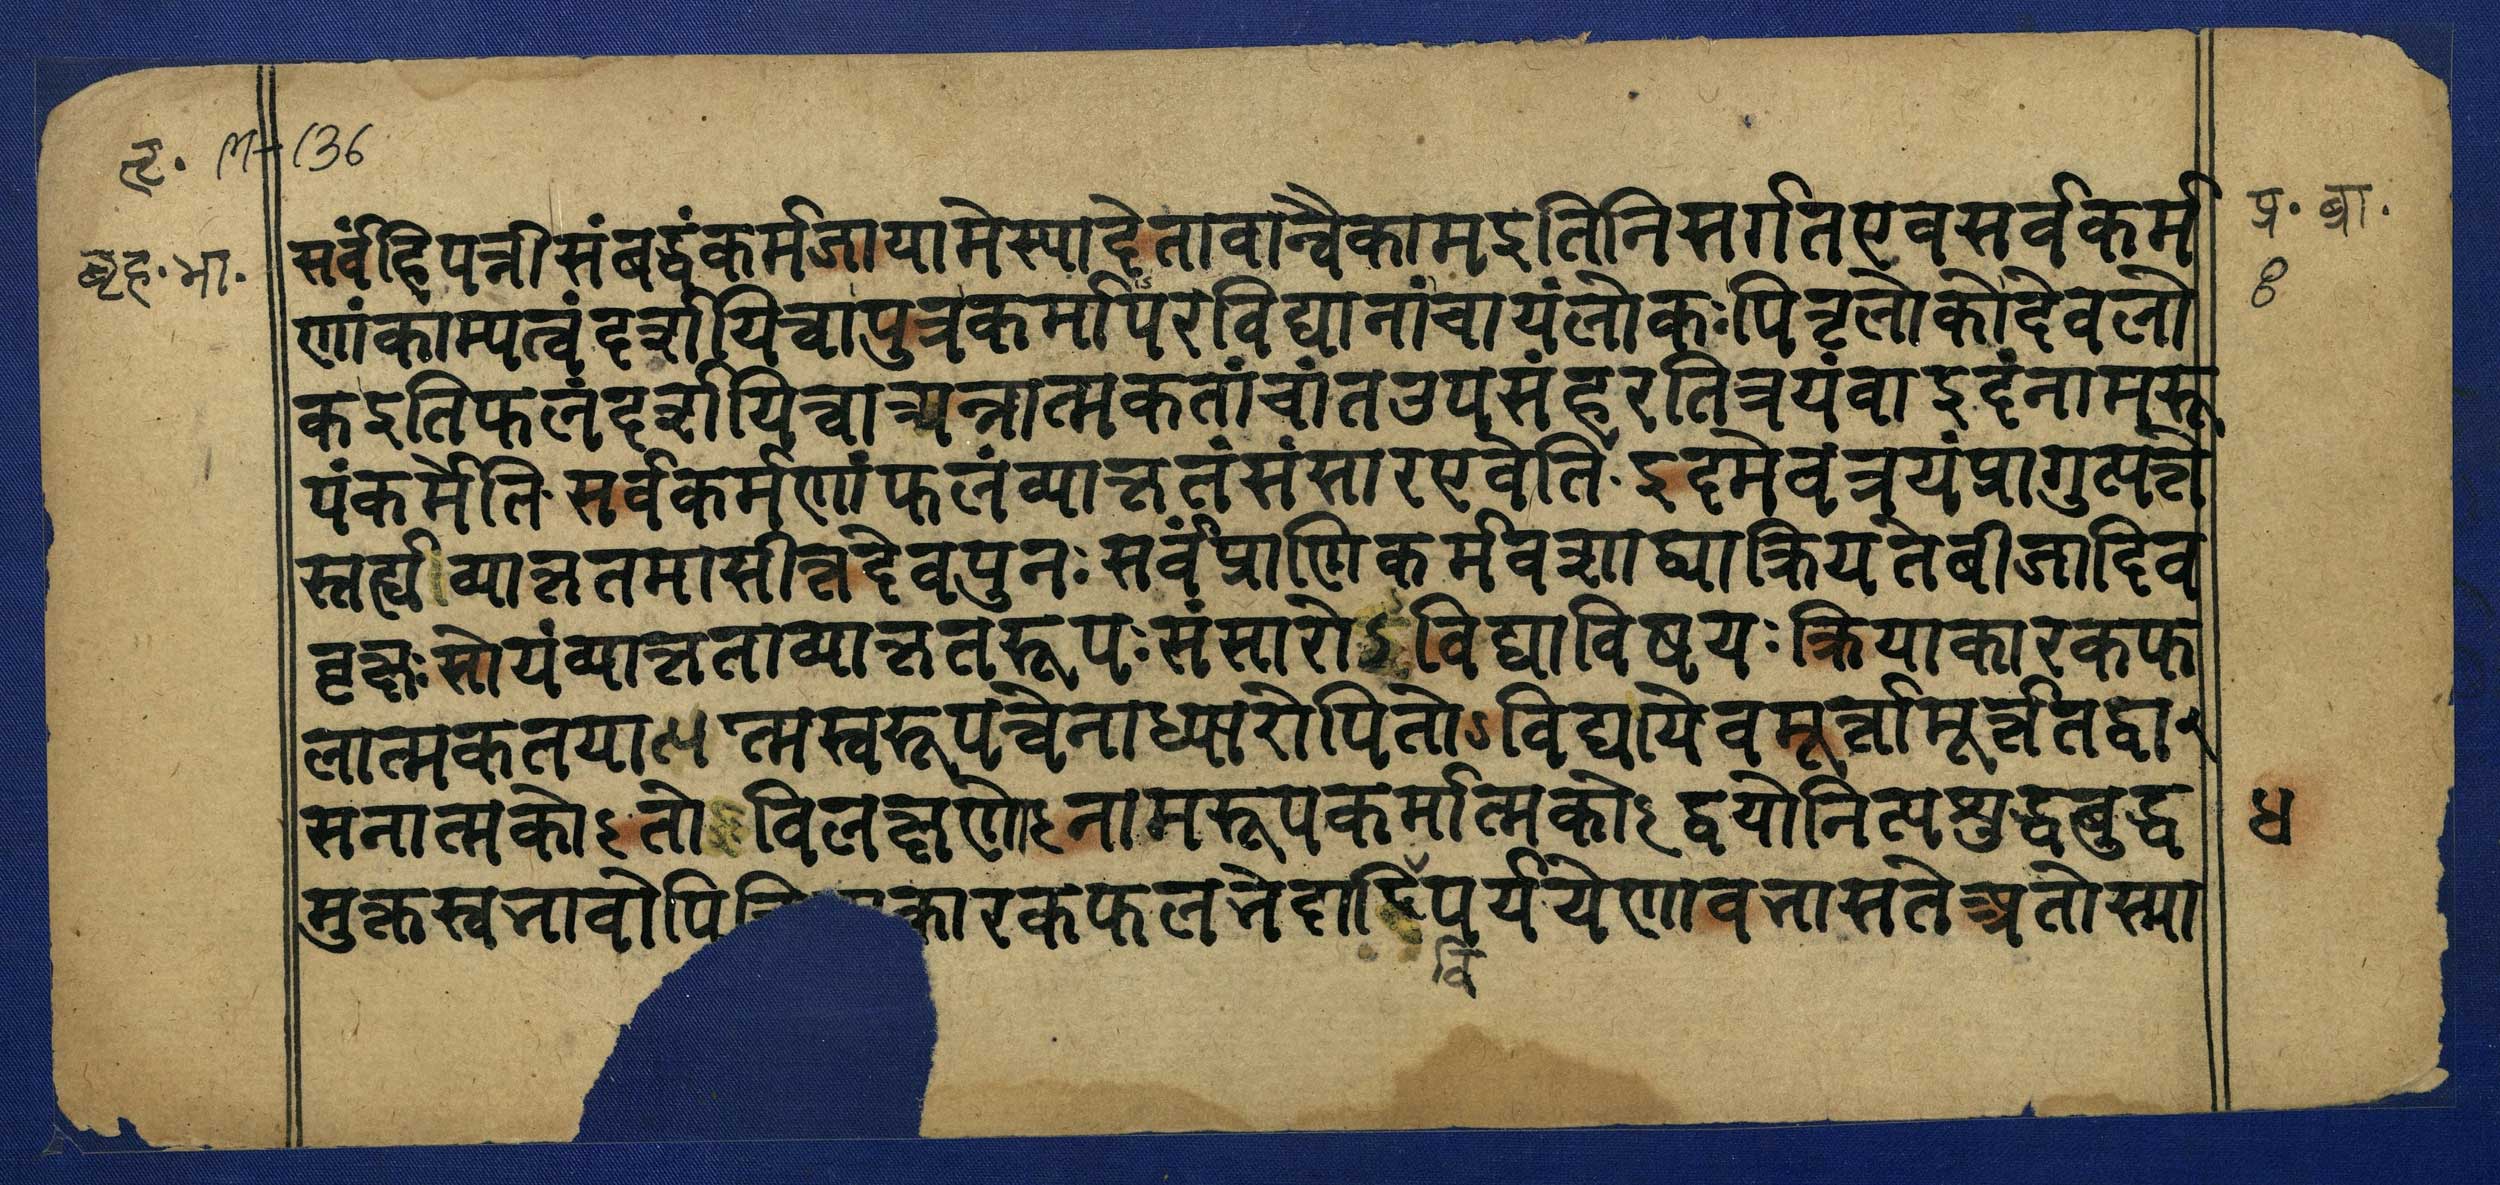 ल. M-136
बृह. भा.
प्र. ब्रा.
8
सर्वं हि पत्नीसंबद्धं कर्म जाया मे स्यादेतावान्वै काम इति निसर्गत एव सर्वकर्म
णां काम्यत्वं दर्शयित्वा पुत्रकर्मापरविद्यानां चायं लोकः पितृलोको देवलो
क इति फलं दर्शयित्वा त्र्यन्नात्मकतां चांत उपसंहरति त्रयं वा इदं नाम रू
पं कर्मेति सर्वकर्मणां फलं व्याकृतं संसार एवेति इदमेव त्रयं प्रागुत्पत्ते
स्तर्ह्यव्याकृतमासीत्तदेव पुनः सर्वप्राणिकर्मवशाद्व्याक्रियते बीजादिव
वृक्षः सोयं व्याकृताव्याकृतरूपः संसारोऽविद्याविषयः क्रियाकारकफ
लात्मकतयात्मस्वरूपत्वेनाध्यारोपितोऽविद्ययैव मूर्त्तामूर्त्ततद्वा
सनात्मकोऽतो विलक्षणोऽनामरूपकर्मात्मकोऽद्वयो नित्यशुद्धबुद्ध
मुक्तस्वभावोपि कारकफलभेदादिपर्ययेणावभासते अतोस्मा
वि
४